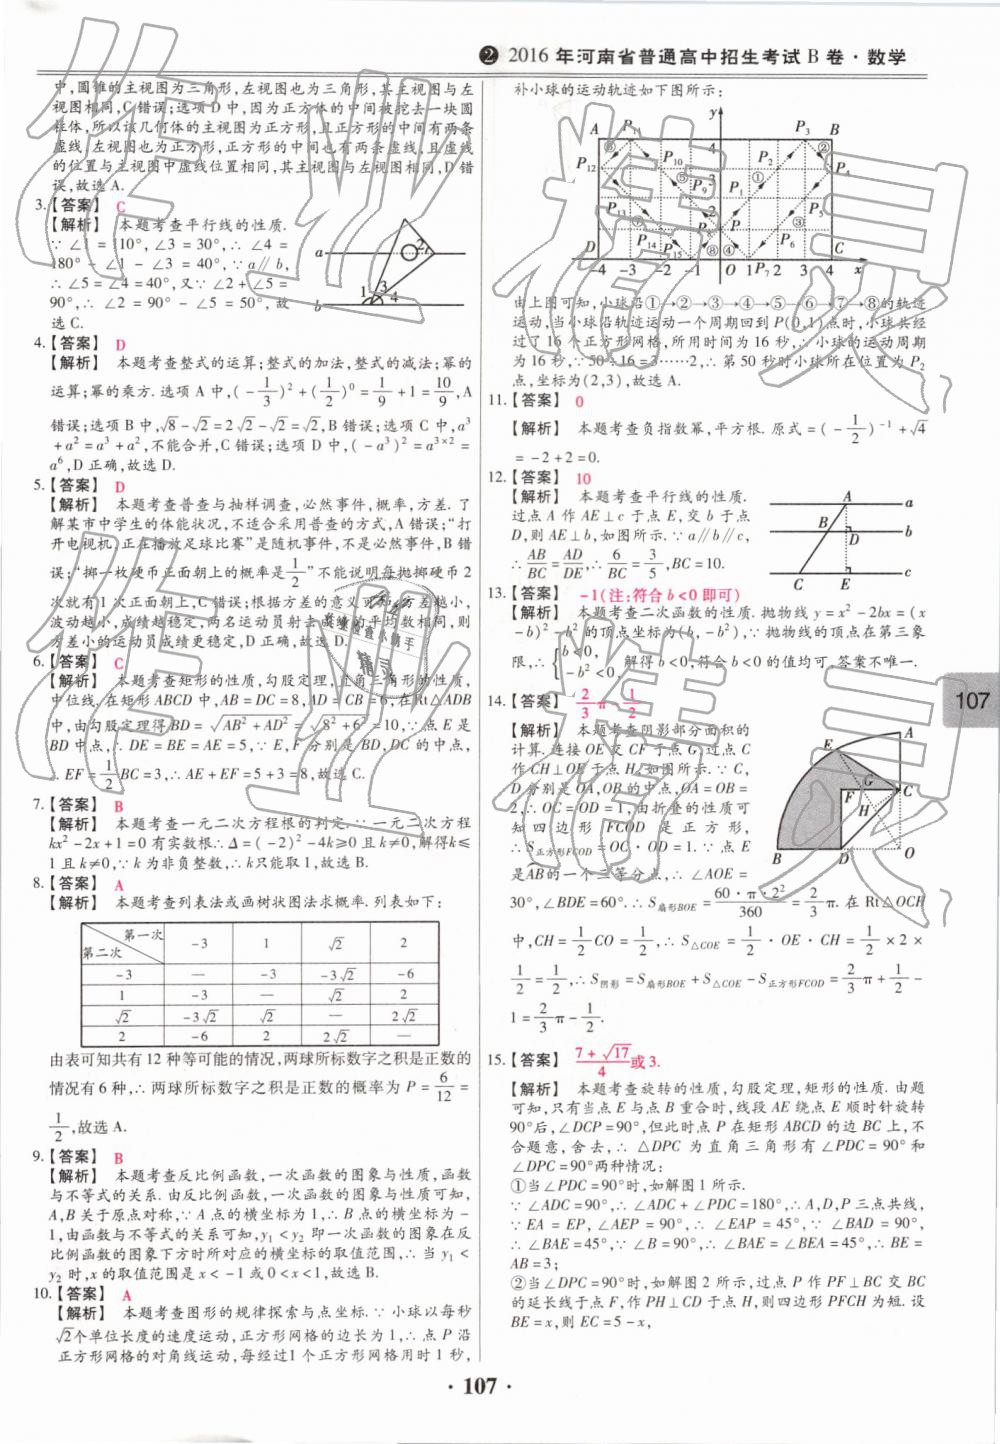 ❷ 2016年河南省普通高中招生考试B卷·数学
中,圆锥的主视图为三角形,左视图也为三角形,其主视图与左
视图相同,C错误;选项D中,因为正方体的中间被挖去一块圆
柱体,所以该几何体的主视图为正方形,且正方形的中间有两条
虚线,左视图也为正方形,正方形的中间也有两条虚线,且虚线
的位置与主视图中虚线位置相同,其主视图与左视图相同,D错
误,故选A.
3.【答案】 C
【解析】 本题考查平行线的性质.
∵∠1=110°,∠3=30°,∴∠4=
180°-∠1-∠3=40°,∵a∥b,
∴∠5=∠4=40°,又∵∠2+∠5=
90°,∴∠2=90°-∠5=50°,故
选C.
a
b
2
1
3
4
4.【答案】 D
【解析】 本题考查整式的运算;整式的加法,整式的减法;幂的
运算;幂的乘方.选项A中,(-1/3)²+(1/2)⁰=1/9+1=10/9,A
错误;选项B中,√8-√2=2√2-√2=√2,B错误;选项C中,a³
+a²=a³+a²,不能合并,C错误;选项D中,(-a³)²=a³ˣ²=
a⁶,D正确,故选D.
5.【答案】 D
【解析】 本题考查普查与抽样调查,必然事件,概率,方差.了
解某市中学生的体能状况,不适合采用普查的方式,A错误;“打
开电视机,正在播放足球比赛”是随机事件,不是必然事件,B错
误;“掷一枚硬币正面朝上的概率是1/2”不能说明每抛掷硬币2
次就有1次正面朝上,C错误;根据方差的意义可知,方差越小,
波动越小,成绩越稳定,两名运动员射击成绩的平均数相同,则
方差小的运动员成绩更稳定,D正确,故选D.
6.【答案】 C
【解析】 本题考查矩形的性质,勾股定理,直角三角形的性质,
中位线.在矩形ABCD中,AB=DC=8,AD=CB=6,在Rt△ADB
中,由勾股定理得BD=√AB²+AD²=√8²+6²=10,∵点E是
BD中点,∴DE=BE=AE=5,∵E,F分别是BD,DC的中点,
∴EF=1/2BC=3,∴AE+EF=5+3=8,故选C.
7.【答案】 B
【解析】 本题考查一元二次方程根的判定.∵一元二次方程
kx²-2x+1=0有实数根∴Δ=(-2)²-4k≥0且k≠0,解得k≤
1且k≠0,∵k为非负整数,∴k只能取1,故选B.
8.【答案】 A
【解析】 本题考查列表法或画树状图法求概率.列表如下:
第一次 第二次 -3 1 √2 2
-3 — -3 -3√2 -6
1 -3 — √2 2
√2 -3√2 √2 — 2√2
2 -6 2 2√2 —
由表可知共有12种等可能的情况,两球所标数字之积是正数的
情况有6种,∴两球所标数字之积是正数的概率为P=6/12=
1/2,故选A.
9.【答案】 B
【解析】 本题考查反比例函数,一次函数的图象与性质,函数
与不等式的关系.由反比例函数,一次函数的图象与性质可知,
A,B关于原点对称,∵A点的横坐标为1,∴B点的横坐标为-
1,由函数与不等式的关系可知,y₁<y₂即一次函数的图象在反
比例函数的图象下方时所对应的横坐标的取值范围,∴当y₁<
y₂时,x的取值范围是x<-1或0<x<1,故选B.
10.【答案】 A
【解析】 本题考查图形的规律探索与点坐标.∵小球以每秒
√2个单位长度的速度运动,正方形网格的边长为1,∴点P沿
正方形网格的对角线运动,每经过1个正方形网格用时1秒,
补小球的运动轨迹如下图所示:
y
A P₁₁ 4 P₃ B
⑧ ②
P₁₂ P₁₀ P₂ P₄
⑤ 3 ①
P₉ P₁
P₁₃ 2 P₅
⑦ ③
P P₆
P₁₄ P₁₅ ⑥ ④
D C
-4 -3 -2 -1 O 1 P₇ 2 3 4 x
由上图可知,小球沿①→②→③→④→⑤→⑥→⑦→⑧的轨迹
运动,当小球沿轨迹运动一个周期回到P(0,1)点时,小球共经
过了16个正方形网格,所用时间为16秒,∴小球的运动周期
为16秒,∵50÷16=3……2,∴第50秒时小球所在位置为P₂
点,坐标为(2,3),故选A.
11.【答案】 0
【解析】 本题考查负指数幂,平方根.原式=(-1/2)⁻¹+√4
=-2+2=0.
12.【答案】 10
【解析】 本题考查平行线的性质.
过点A作AE⊥c于点E,交b于点
D,则AE⊥b,如图所示.∵a∥b∥c,
∴AB/BC=AD/DE,∴6/BC=3/5,BC=10.
A a
B D b
C E c
13.【答案】 -1(注:符合b<0即可)
【解析】 本题考查二次函数的性质.抛物线y=x²-2bx=(x
-b)²-b²的顶点坐标为(b,-b²),∵抛物线的顶点在第三象
限,∴{b<0, -b²<0, 解得b<0,符合b<0的值均可.答案不唯一.
14.【答案】 2/3π-1/2
【解析】 本题考查阴影部分面积的
计算.连接OE交CF于点G,过点C
作CH⊥OE于点H,如图所示.∵C,
D分别是OA,OB的中点,OA=OB=
2,∴OC=OD=1,由折叠的性质可
知四边形FCOD是正方形,
∴S正方形FCOD=OC·OD=1.∵点E
是AB的一个三等分点,∴∠AOE=
30°,∠BOE=60°.∴S扇形BOE=60·π·2²/360=2/3π.在Rt△OCH
中,CH=1/2CO=1/2,∴S△COE=1/2·OE·CH=1/2×2×
1/2=1/2,∴S阴影=S扇形BOE+S△COE-S正方形FCOD=2/3π+1/2-
1=2/3π-1/2.
A
E
G
F C
H
B D O
15.【答案】 (7+√17)/4或3.
【解析】 本题考查旋转的性质,勾股定理,矩形的性质.由题
可知,只有当点E与点B重合时,线段AE绕点E顺时针旋转
90°后,∠DCP=90°,但此时点P在矩形ABCD的边BC上,不
合题意,舍去,∴△DPC为直角三角形有∠PDC=90°和
∠DPC=90°两种情况:
①当∠PDC=90°时,如解图1所示.
∵∠ADC=90°,∴∠ADC+∠PDC=180°,∴A,D,P三点共线,
∵EA=EP,∠AEP=90°,∴∠EAP=45°,∵∠BAD=90°,
∴∠BAE=45°,∵∠B=90°,∴∠BAE=∠BEA=45°,∴BE=
AB=3;
②当∠DPC=90°时,如解图2所示,过点P作PF⊥BC交BC
的延长线于点F,作PH⊥CD于点H,则四边形PFCH为矩.设
BE=x,则EC=5-x,
107
· 107 ·
作业精灵
作业精灵